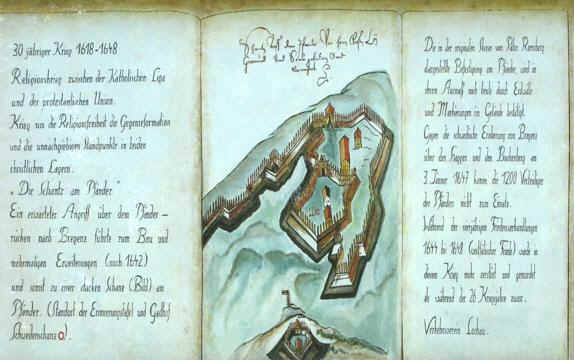 30 jähriger Krieg 1618-1648
Religionskrieg zwischen der Katholischen Liga
und der protestantischen Union.
Krieg um die Religionsfreiheit die Gegenreformation
und die unnachgiebigen Standpunkte in beiden
christlichen Lagern.
„Die Schantz am Pfänder"
Ein erwarteter Angriff über den Pfänder-
rücken nach Bregenz führte zum Bau und
mehrmaligen Erweiterungen (auch 1642)
und somit zu einer starken Schanz (Bild) am
Pfänder. (Standort der Erinnerungstafel und Gasthof
Schwedenschanz o).
Die in der originalen Skizze von Pater Ransberg
dargestellte Befestigung am Pfänder, wird in
ihrem Ausmaß noch heute durch Erdwälle
und Markierungen im Gelände bestätigt.
Gegen die schwedische Eroberung von Bregenz
über den Haggen und den Buchenberg am
3. Jänner 1647 kamen die 1200 Verteidiger
des Pfänders nicht zum Einsatz.
Während der vierjährigen Friedensverhandlungen
1644 bis 1648 (westfälischer Friede) wurde in
diesem Krieg mehr zerstört und gemordet
als während der 26 Kriegsjahre zuvor.
Verkehrsverein Lochau.